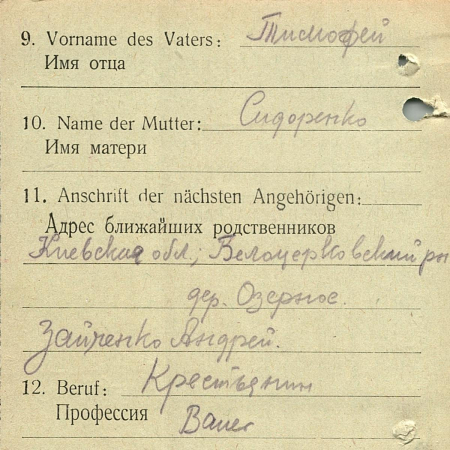 9. Vorname des Vaters: Тимофей
Имя отца
10. Name der Mutter: Сидоренко
Имя матери
11. Anschrift der nächsten Angehörigen:
Адрес ближайших родственников
Киевская обл., Белоцерковский рн
дер. Озерное.
Зайченко Андрей.
12. Beruf: Крестьянин
Профессия Bauer